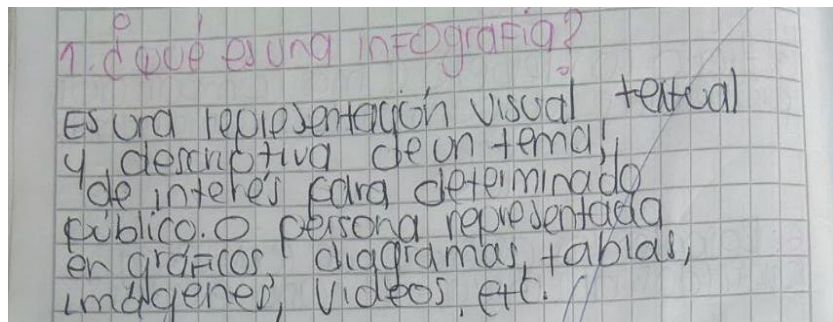 1. ¿qué es una infografía?
Es una representación visual textual
y descriptiva de un tema,
de interés para determinado
público. O persona representada
en gráficos, diagramas, tablas,
imágenes, videos, etc.